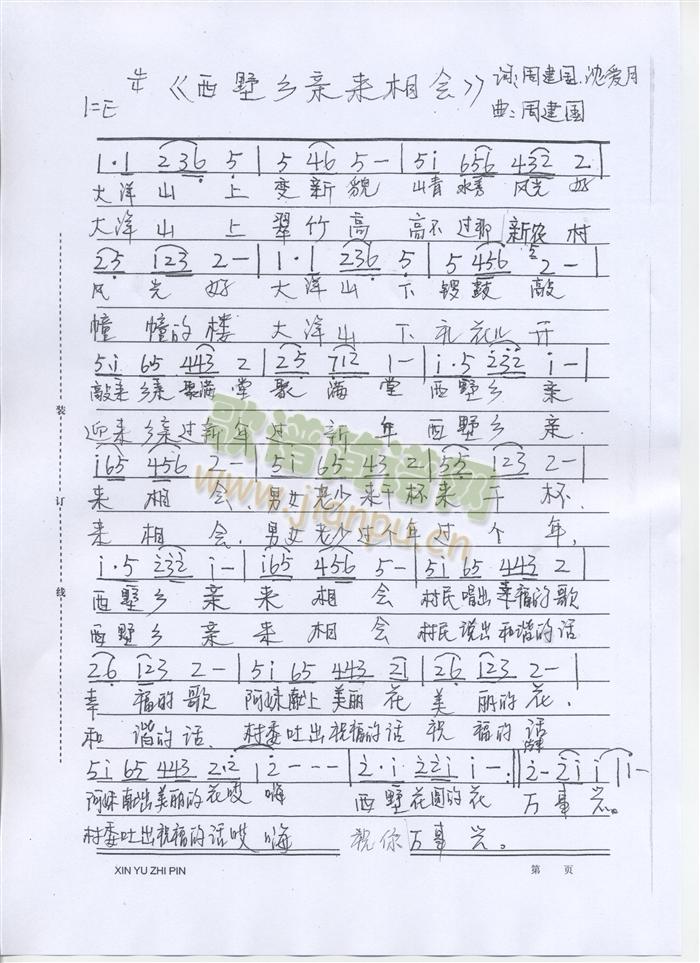 《西墅乡亲来相会》 词:周建国.沈爱月
1=E 曲:周建国
1·1 236 5 | 5 46 5 — | 5i 656 432 2 |
大洋山上变新貌 山青水秀风光好
大洋山上翠竹高 高不过那新农村
25 123 2 — | 1·1 236 5 | 5 456 2 — |
风光好 大洋山下锣鼓敲
幢幢的楼 大洋山下礼花儿开
5i 65 443 2 | 25 712 1 — | i·5 232 i — |
敲来乡亲聚满堂聚满堂 西墅乡亲
迎来乡亲过新年过新年 西墅乡亲
i65 456 2 — | 5i 65 43 2 | 55 123 2 — |
来相会,男女老少来干杯来干杯.
来相会,男女老少过个年过个年,
i·5 232 i — | i65 456 5 — | 5i 65 443 2 |
西墅乡亲来相会 村民唱出幸福的歌
西墅乡亲来相会 村民说出和谐的话
26 123 2 — | 5i 65 443 21 | 26 123 2 — |
幸福的歌 阿妹献上美丽花美丽的花.
和谐的话.村委吐出祝福的话祝福的话
5i 65 443 2·2 | 2 — — — | 2·i 22i i — :|| 2 — 2i i | i — |
阿妹献出美丽的花哎嗨 西墅花园的花 万事兴。
村委吐出祝福的话哎嗨 祝你万事兴。
装
订
线
歌谱简谱网
www.jianpu.cn
XIN YU ZHI PIN 第 页